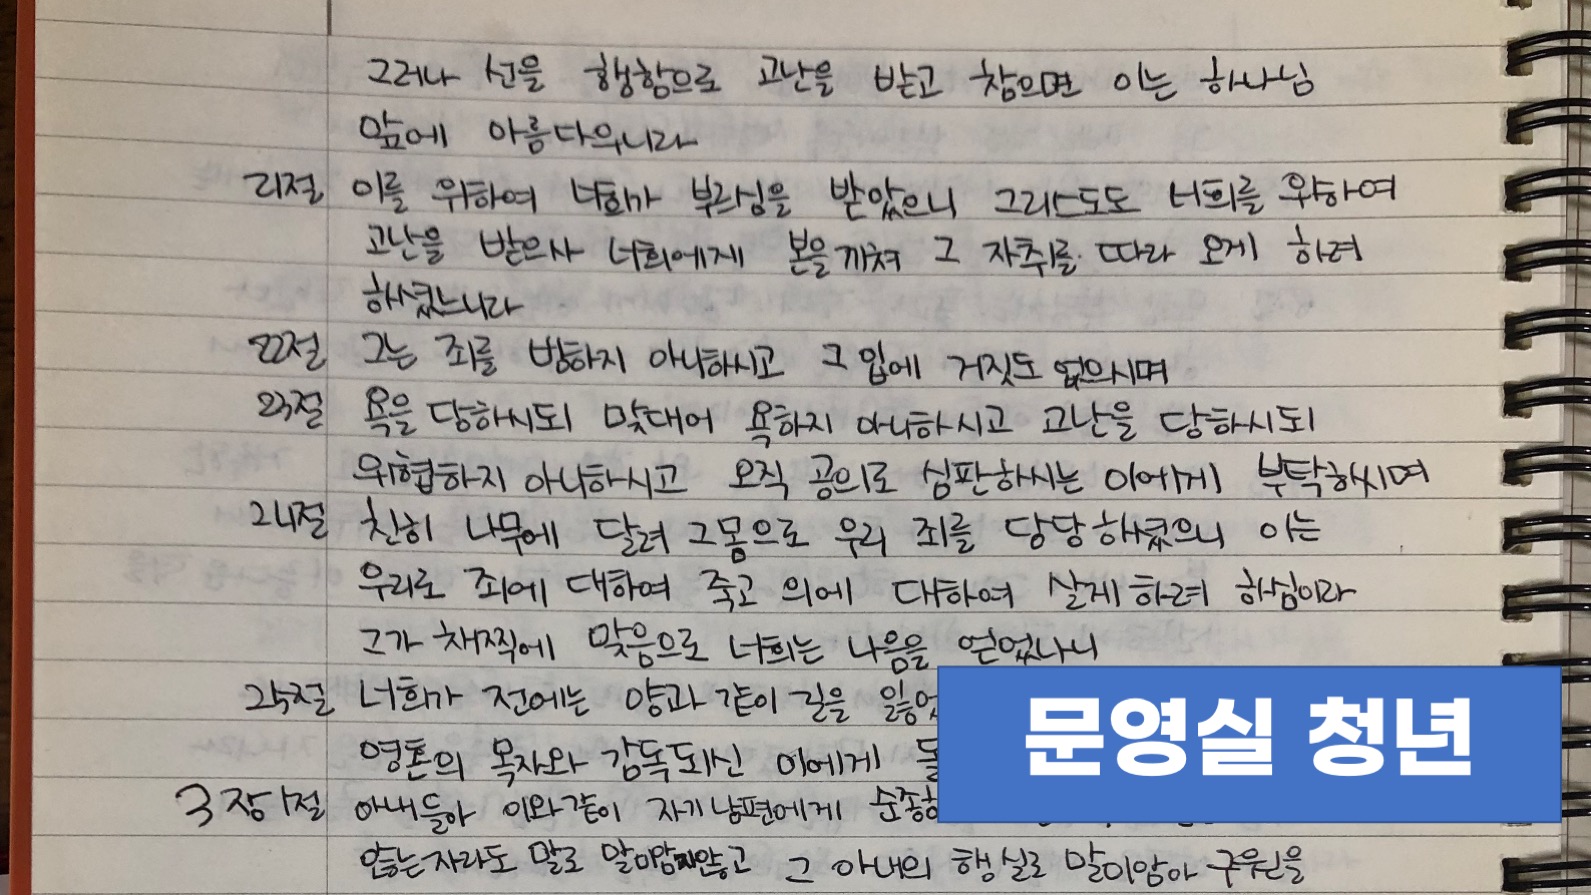 그러나 선을 행함으로 고난을 받고 참으면 이는 하나님
앞에 아름다우니라
21절 이를 위하여 너희가 부르심을 받았으니 그리스도도 너희를 위하여
고난을 받으사 너희에게 본을 끼쳐 그 자취를 따라 오게 하려
하셨느니라
22절 그는 죄를 범하지 아니하시고 그 입에 거짓도 없으시며
23절 욕을 당하시되 맞대어 욕하지 아니하시고 고난을 당하시되
위협하지 아니하시고 오직 공의로 심판하시는 이에게 부탁하시며
24절 친히 나무에 달려 그 몸으로 우리 죄를 담당하셨으니 이는
우리로 죄에 대하여 죽고 의에 대하여 살게 하려 하심이라
그가 채찍에 맞음으로 너희는 나음을 얻었나니
25절 너희가 전에는 양과 같이 길을
영혼의 목자와 감독되신 이에게
3장 1절 아내들아 이와같이 자기 남편에게
않는 자라도 말로 말미암지않고 그 아내의 행실로 말미암아 구원을
문영실 청년